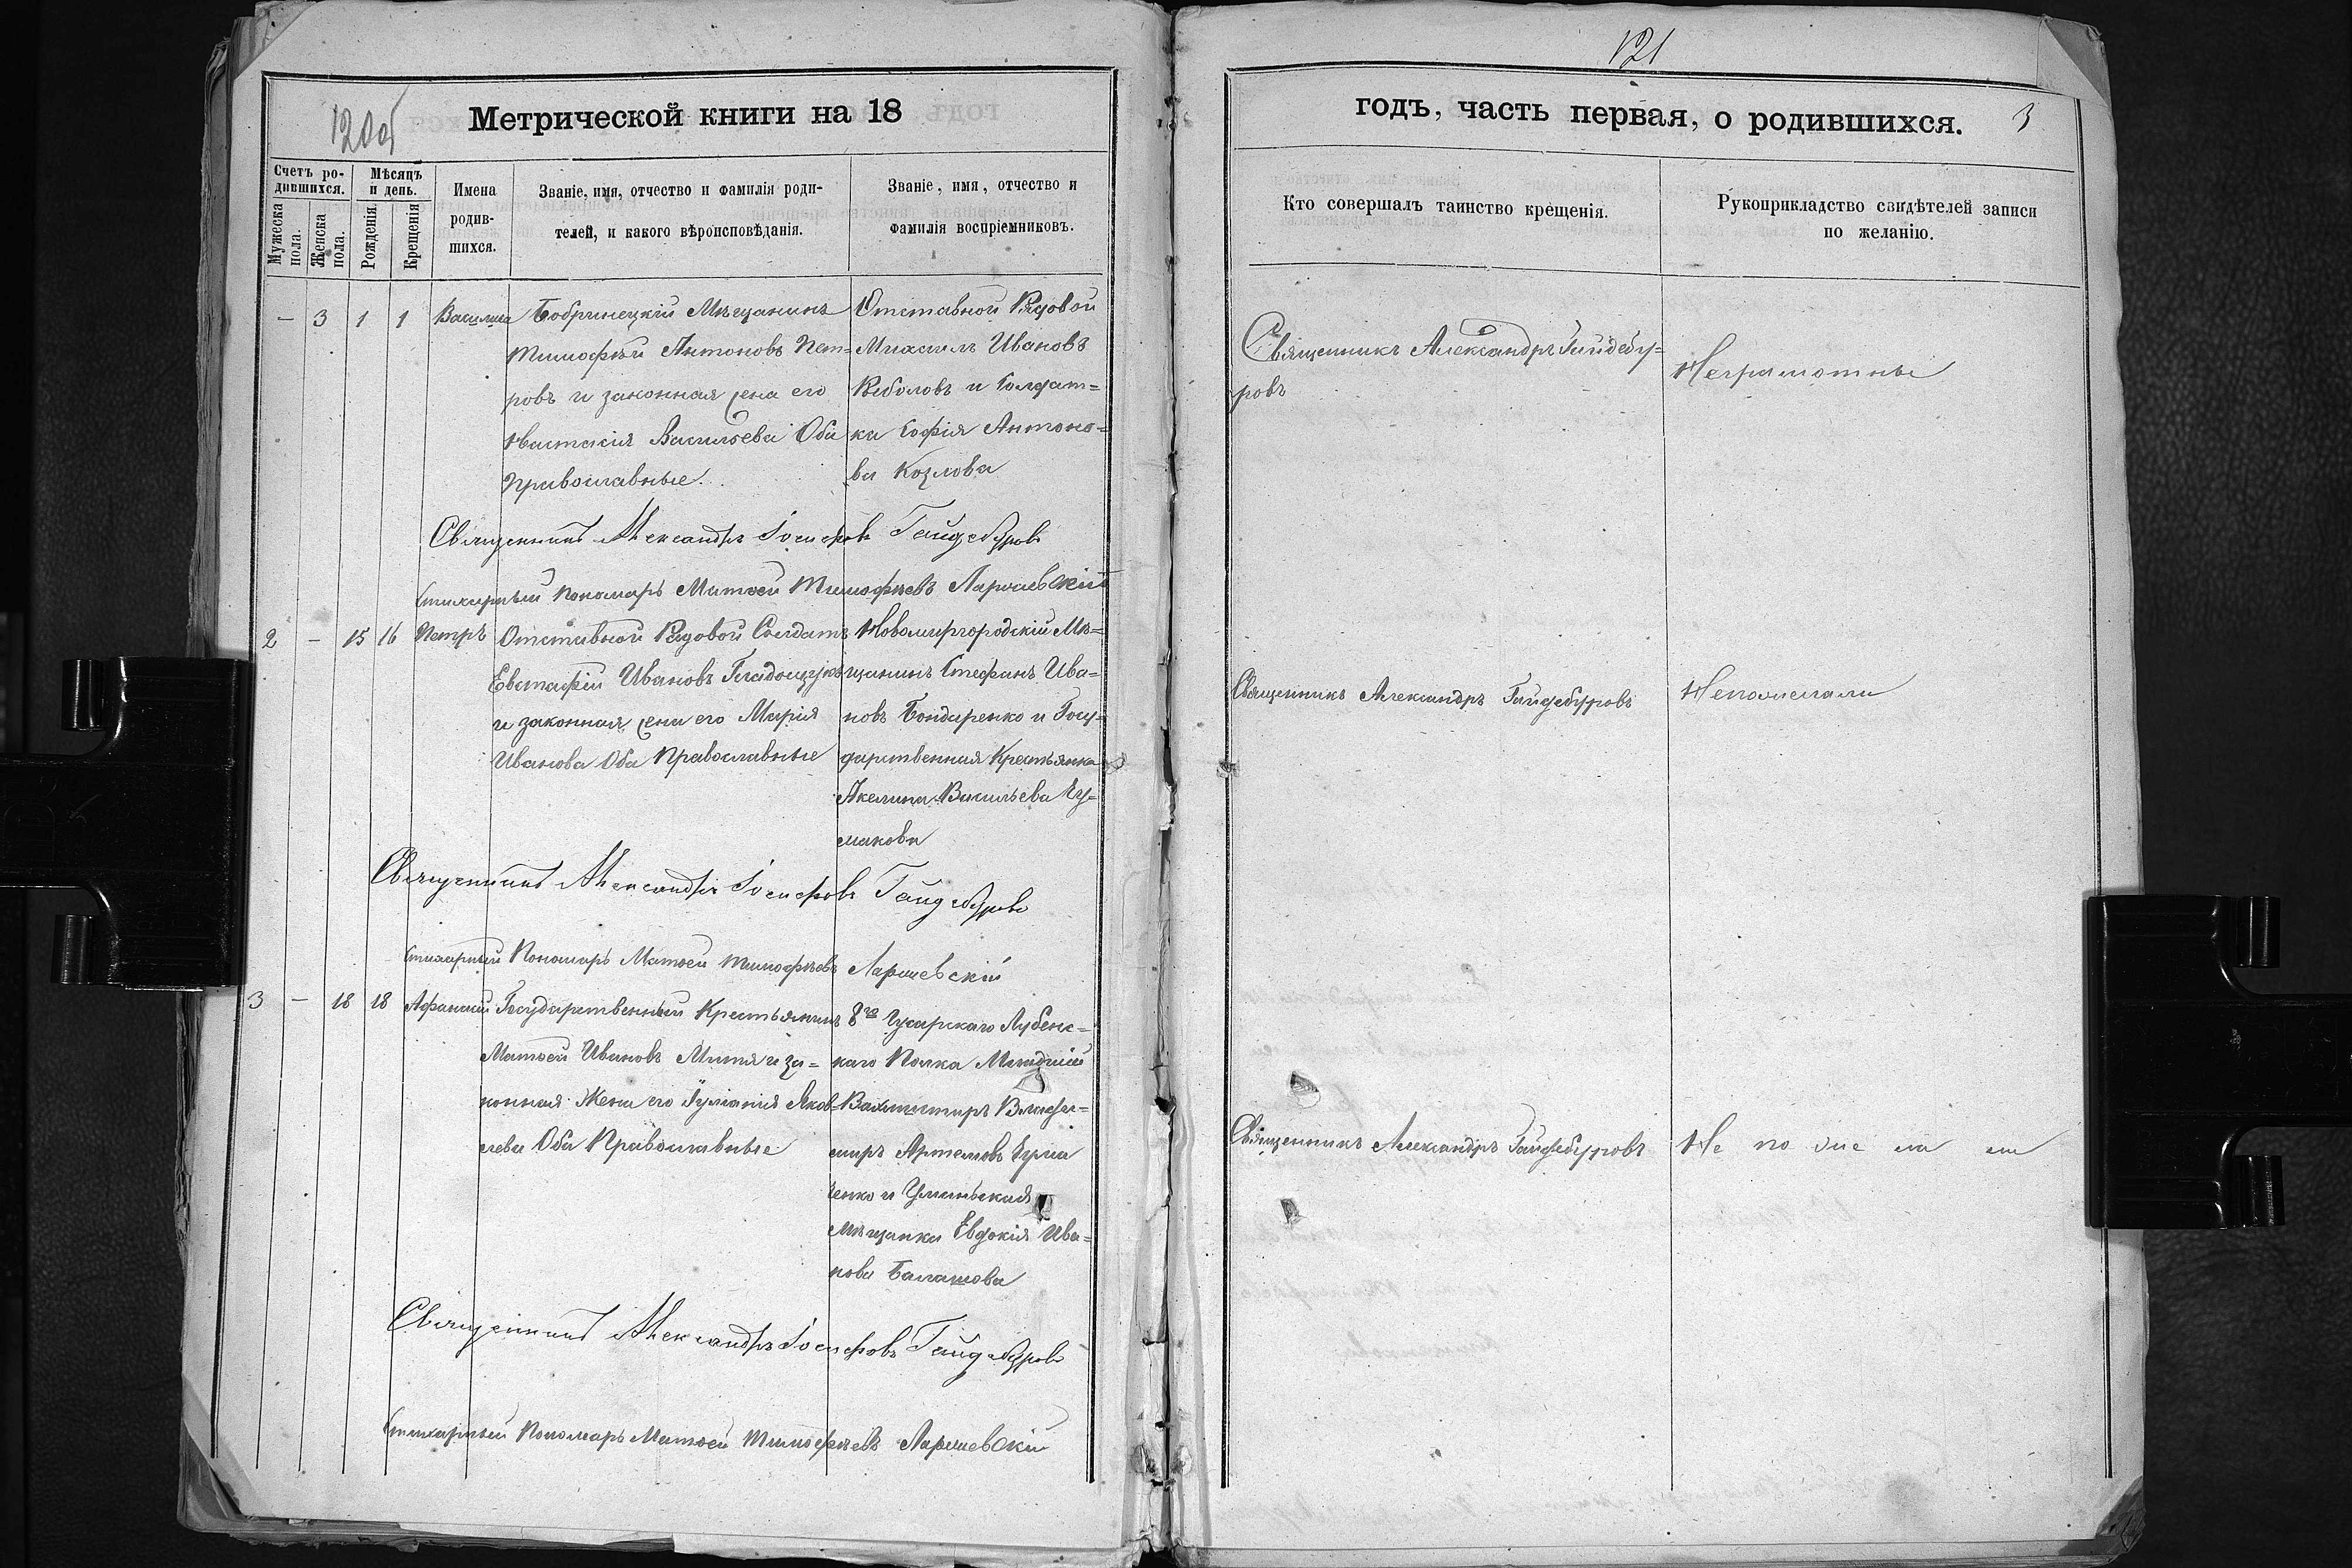 120об
Метрической книги на 18
Счетъ ро-
дившихся.
Мужеска
пола.
Женска
пола.
Мѣсяцъ
и день.
Рожденія.
Крещенія
Имена
родив-
шихся.
Званіе, имя, отчество и фамилія роди-
телей, и какого вѣроисповѣданія.
Званіе, имя, отчество и
фамилія воспріемниковъ.
— 3 1 1
Бобринецкій Мѣщанинъ
Тимофѣй Антоновъ Пет=
ровъ и законная жена его
Настасія Васильева Оба
Православные.
Отставной Рядовой
Михаилъ Ивановъ
и Солдат=
ка Софія Антоно=
ва Козлова
Священникъ Александръ Іосифовъ Гайдебуровъ
Стихарный Пономарь Матвей Тимофѣевъ
2 — 15 16 Петръ
Отставной Рядовой Солдатъ
Евстафій Ивановъ
и законная жена его Марія
Иванова Оба Православные
Новомиргородскій Мѣ=
щанинъ Стефанъ Ива=
новъ Бондаренко и Госу=
дарственная Крестьянка
Акелина Васильева Чу=
макова
Священникъ Александръ Іосифовъ Гайдебуровъ
Стихарный Пономарь Матвей Тимофѣевъ
3 — 18 18 Афанасій
Государственный Крестьянинъ
Матвей Ивановъ и за=
конная Жена его Іуліанія Яков=
лева Оба Православные
8го Гусарскаго Лубенс=
каго Полка Младшій
Вахмистръ Влади=
миръ Артемовъ
и Уманьская
Мѣщанка Евдокія Ива=
нова Балашова
Священникъ Александръ Іосифовъ Гайдебуровъ
Стихарный Пономарь Матвей Тимофѣевъ
121
годъ, часть первая, о родившихся. 3
Кто совершалъ таинство крещенія.
Рукоприкладство свидѣтелей записи
по желанію.
Священникъ Александръ Гайдебу=
ровъ
Неграмотны
Священникъ Александръ Гайдебуровъ
Непожелали
Священникъ Александръ Гайдебуровъ
Не по же ла ли